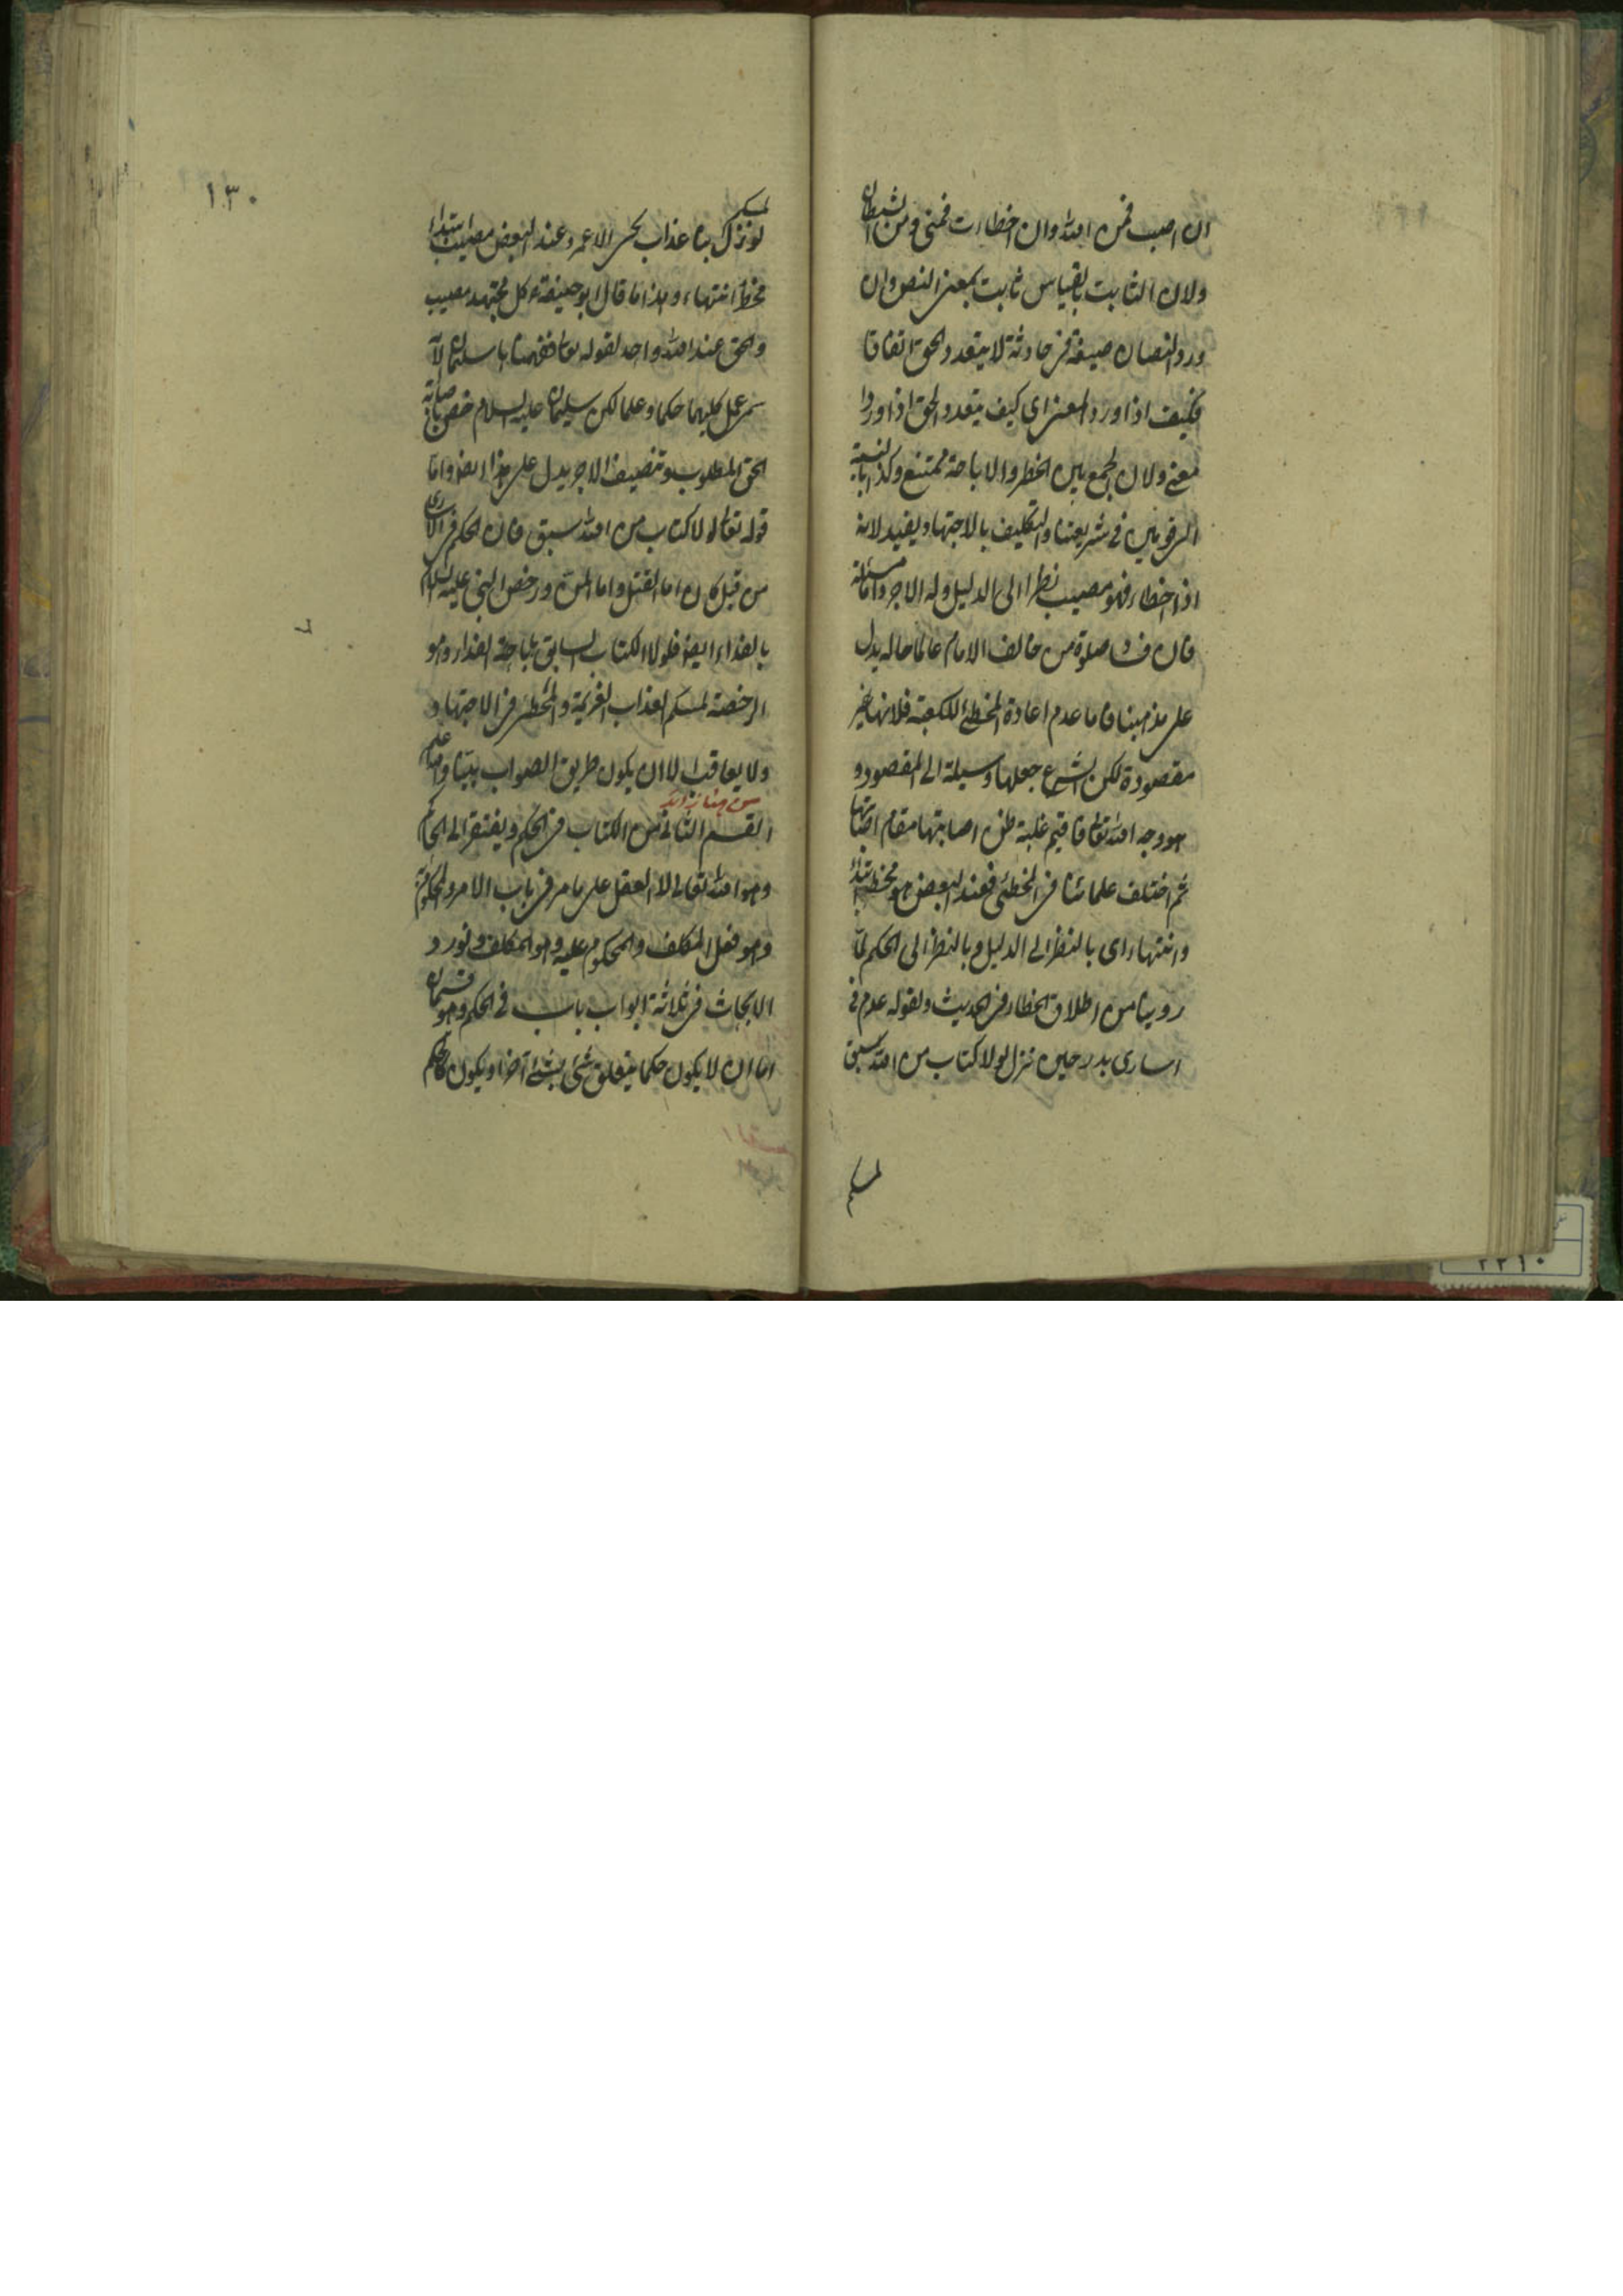 ان اصب فمن الله وان اخطاءت فمنى ومن الشيطان
ولان الثابت بالقياس ثابت بمعنى النص وان
ورد النصان صيغة فى حادثة لا يتعدد الحق اتفاقا
فكيف اذا ورد المعنى اى كيف يتعدد الحق اذا وردا
معنى ولان الجمع بين الحظر والاباحة ممتنع وكذا بالنسبة
فى شريعتنا والتكليف بالاجتهاد يفيد لانه
اذا اخطاء فهو مصيب نظرا الى الدليل وله الاجر واما مسئلة
فان فساد صلوة من خالف الامام عالما حاله يدل
على مذهبنا فاما عدم اعادة المخطئ للكعبة فلانها غير
مقصودة لكن الشرع جعلها وسيلة الى المقصود و
هو وجه الله تعا فاقيم غلبة ظن اصابتها مقام اصابتها
ثم اختلف علمائنا فى المخطئ فعند البعض هو مخطئ ابتداء
وانتهاء اى بالنظر الى الدليل وبالنظر الى الحكم لما
روينا من اطلاق الخطاء فى الحديث ولقوله عدم فى
اسارى بدر حين نزل لولا كتاب من الله سبق
لمسكم
١٣٠
لمسكم
لو نزل بنا عذاب الا عمر وعند البعض مصيب ابتداء
مخطئ انتهاء وهذا ما قال ابو حنيفة كل مجتهد مصيب
والحق عند الله واحد لقوله تعا ففهمناها سليمان الآ
سمى عمل كليهما حكما وعلما لكن سليمان عليه السلام خص باصابة
الحق المطلوب وتنصيف الاجر يدل على هذا ايضا واما
قوله تعا لولا كتاب من الله سبق فان الحكم فى الاسارى
من قبل كان اما القتل واما المن ورخص النبى عليه السلام
بالفداء ايضا فلولا الكتاب السابق باباحة الفداء وهو
الرخصة لمسكم العذاب العزيمة والمخطئ فى الاجتهاد
ولا يعاقب الا ان يكون طريق الصواب بينا والله اعلم
القسم الثانى من الكتاب فى الحكم ويفتقر الى الحاكم
وهو الله تعالى لا العقل على ما مر فى باب الامر والمحكوم به
وهو فعل المكلف والمحكوم عليه وهو المكلف ونورد
الابحاث فى ثلاثة ابواب باب فى الحكم وهو قسمان
اما ان لا يكون حكما بتعلق شئ بشئ آخر او يكون كالحكم